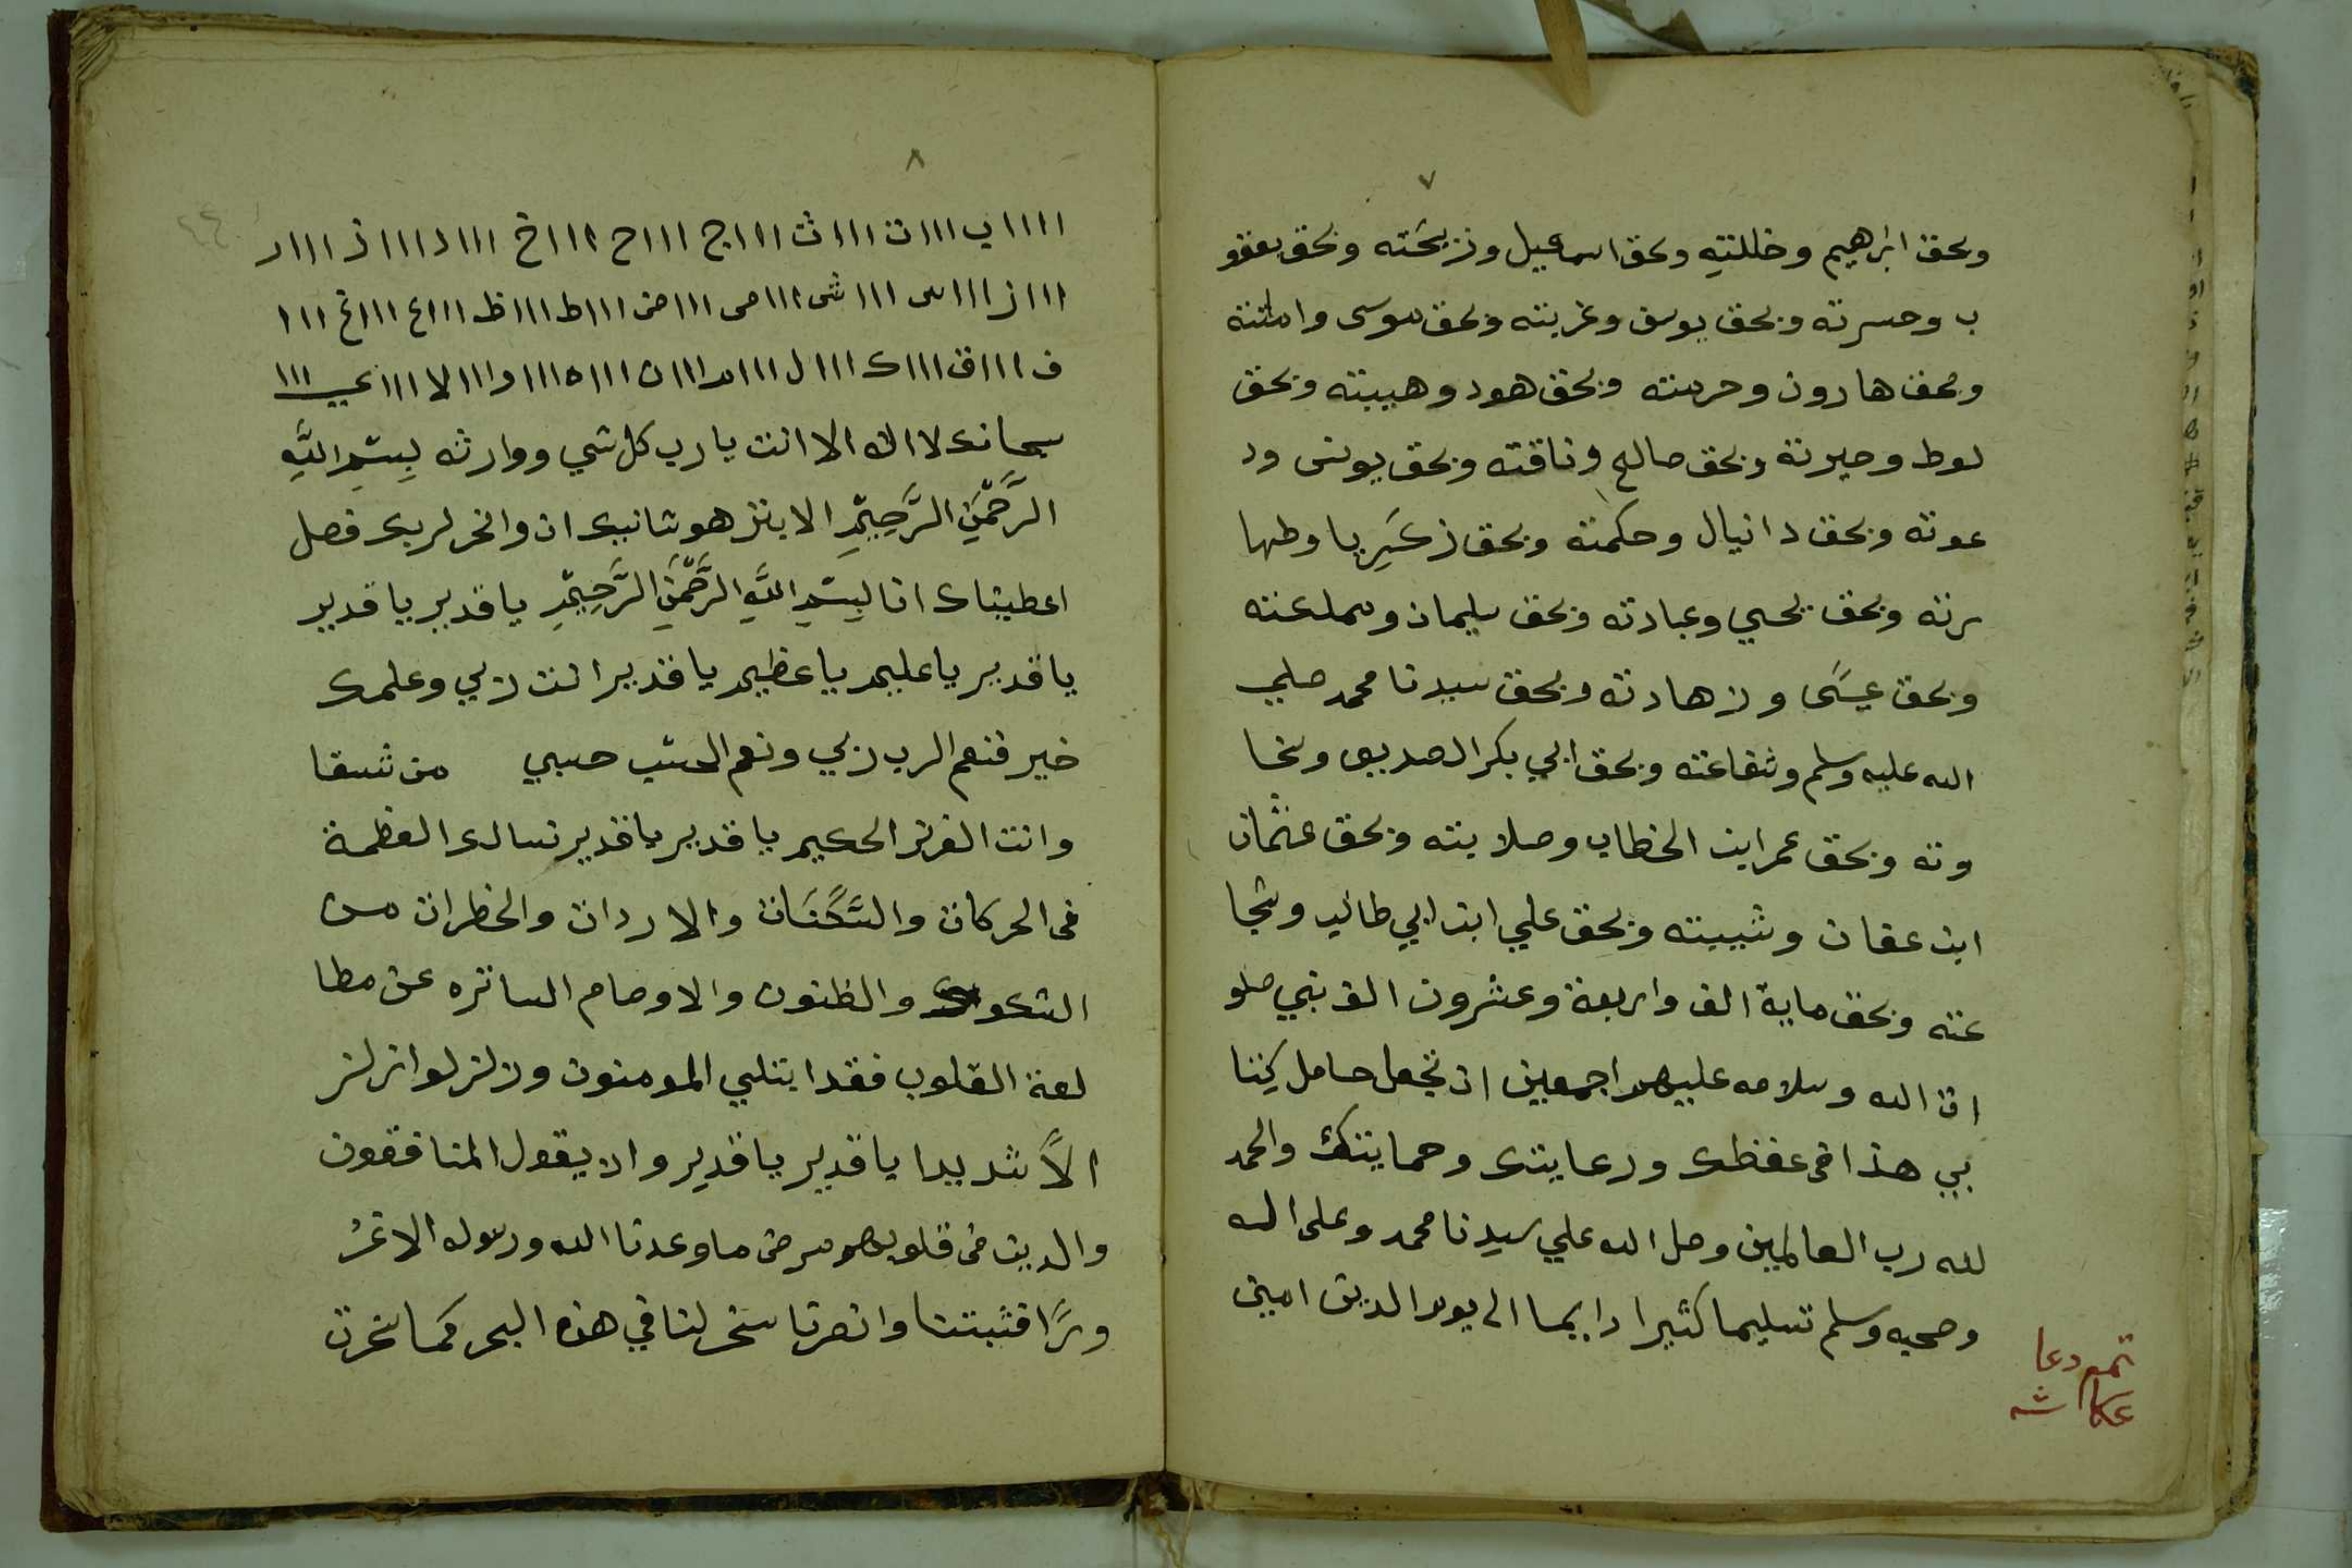 ٧
وبحق ابرهيم وخللته وبحق اسماعيل وذبحته وبحق يعقو
ب وحسرته وبحق يوسف وغربته وبحق موسى وامانته
وبحق هارون وحرمته وبحق هود وهيبته وبحق
لوط وحيرته وبحق صالح وناقته وبحق يونس ود
عوته وبحق دانيال وحكمته وبحق زكريا وطها
رته وبحق يحيي وعبادته وبحق سليمان ومملكته
وبحق عيسى وزهادته وبحق سيدنا محمد صلي
الله عليه وسلم وشفاعته وبحق ابي بكر الصديق وسخا
وته وبحق عمر ابن الخطاب وصلابته وبحق عثمان
ابن عفان وشيبته وبحق علي ابن ابي طالب وشجا
عته وبحق ماية الف واربعة وعشرون الف نبي صلو
ات الله وسلامه عليهم اجمعين ان تجعل حامل كتا
بي هذا في حفظك ورعايتك وحمايتك والحمد
لله رب العالمين وصل الله علي سيدنا محمد وعلى اله
وصحبه وسلم تسليما كثيرا دايما الى يوم الدين امين
تمم دعا
عكاشه
٨
اااا ب ااا ت ااا ث ااا ج ااا ح ااا خ ااا د ااا ذ ااا ر
ااا ز ااا س ااا ش ااا ص ااا ض ااا ط ااا ظ ااا ع ااا غ ااا
ف ااا ق ااا ك ااا ل ااا م ااا ن ااا ه ااا و ااا لا ااا ي ااا
سبحانك لا اله الا انت يا رب كل شي ووارثه بِسْمِ اللَّهِ
الرَّحْمَنِ الرَّحِيْمِ الابتر هو شانيك ان وانحر لربك فصل
اعطيناك انا بِسْمِ اللَّهِ الرَّحْمَنِ الرَّحِيْمِ يا قدير يا قدير
يا قدير يا عليم يا عظيم يا قدير انت ربي وعلمك
خير فنعم الرب ربي ونعم الحسب حسبي من تشا
وانت العزيز الحكيم يا قدير يا قدير نسالك العظمة
في الحركات والسَّكَنَات والاردات والخطرات من
الشكوك والظنون والاوهام الساتره عن مطا
لعة القلوب فقد ابتلي المومنون وزلزلوا زلز
الاً شديدا يا قدير يا قدير واذ يقول المنافقون
والذين في قلوبهم مرض ما وعدنا الله ورسوله الا غر
ورًا فثبتنا وانصرنا سخر لنا في هذه البحر كما سخرت